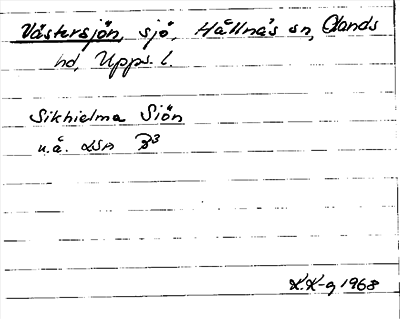 Västersjön, sjö, Hållnäs sn, Olands
hd, Upps. l.
Sikhielma Siön
u.å. LSA B3
K.K-g 1968